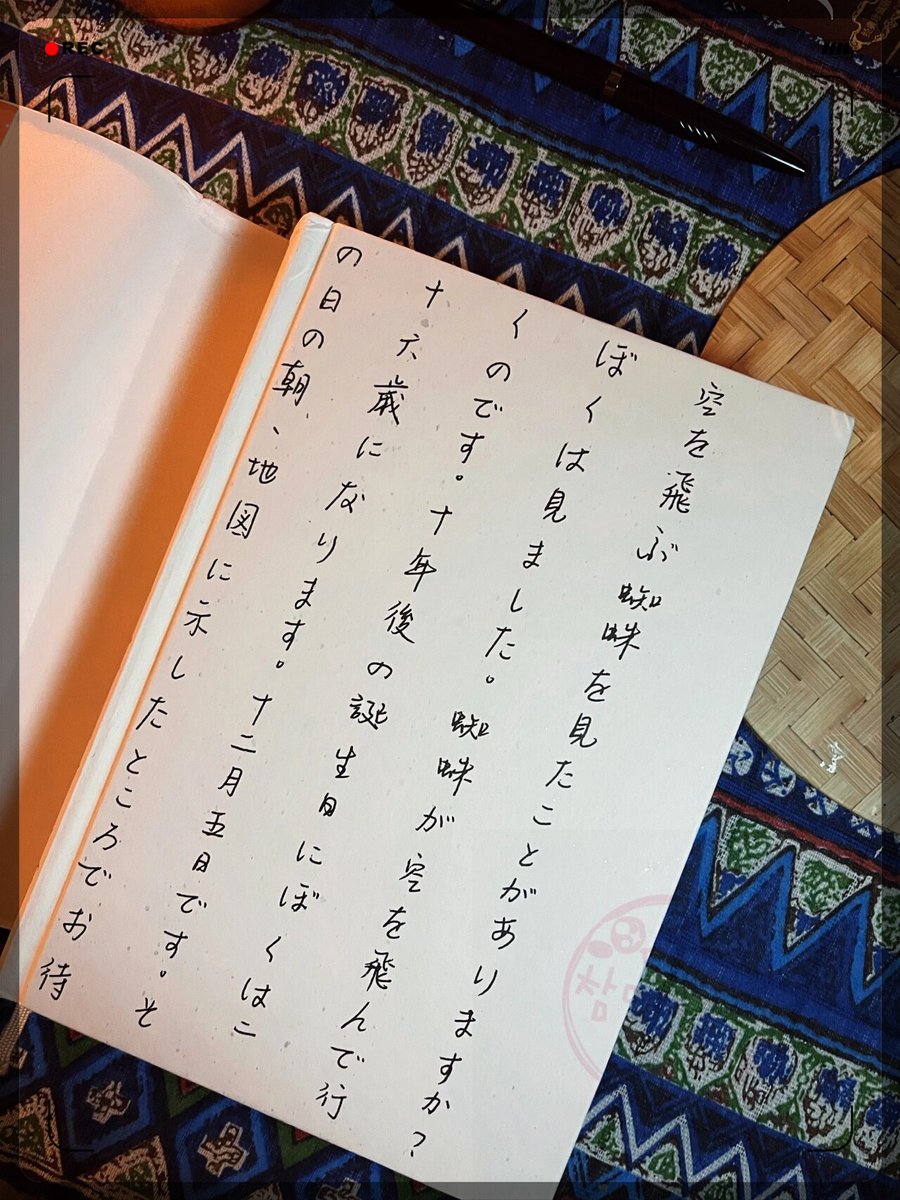 REC
空を飛ぶ蜘蛛を見たことがありますか?
ぼくは見ました。蜘蛛が空を飛んで行
くのです。十年後の誕生日にぼくは二
十六歳になります。十二月五日です。そ
の日の朝、地図に示したところでお待
참